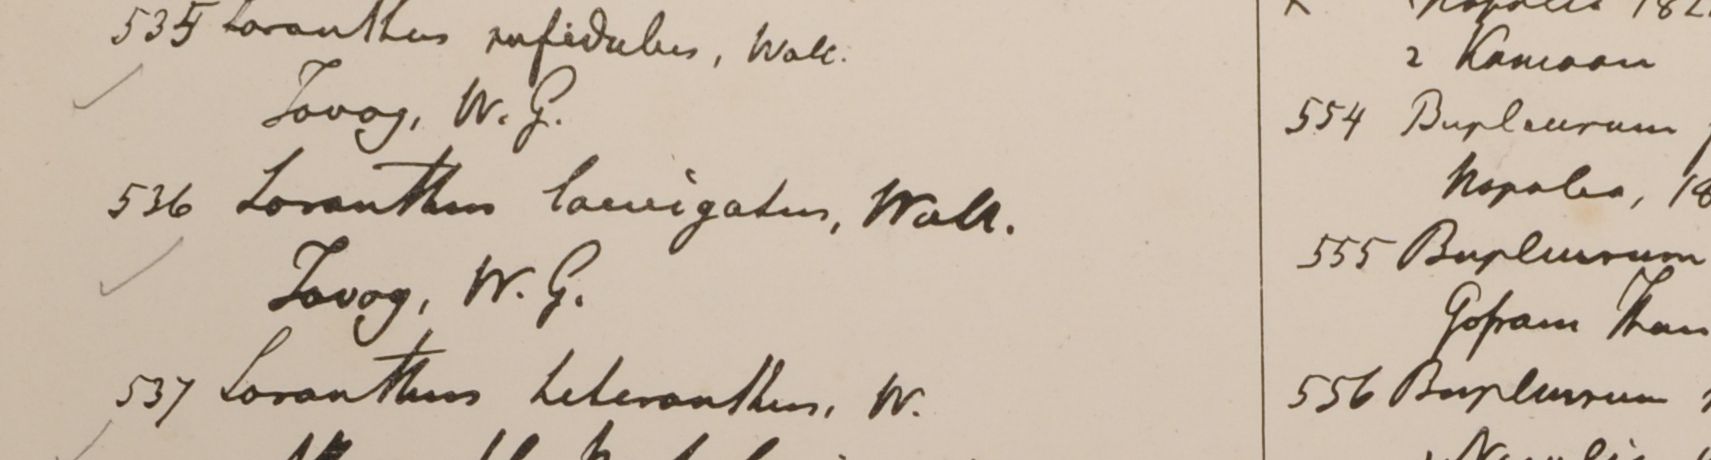 535 Loranthus rufidulus, Wall.
Tavoy, W. G.
536 Loranthus laevigatus, Wall.
Tavoy, W. G.
537 Loranthus heteranthus, W.
2 Kamaon
554 Bupleurum
Napalia, 18
555 Bupleurum
Gossain Than
556 Bupleurum